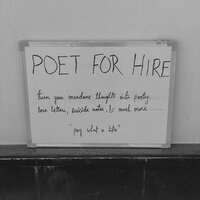 POET FOR HIRE
turn you mundane thoughts into poetry.....
love letters, suicide notes, & much more......
"pay what u like"